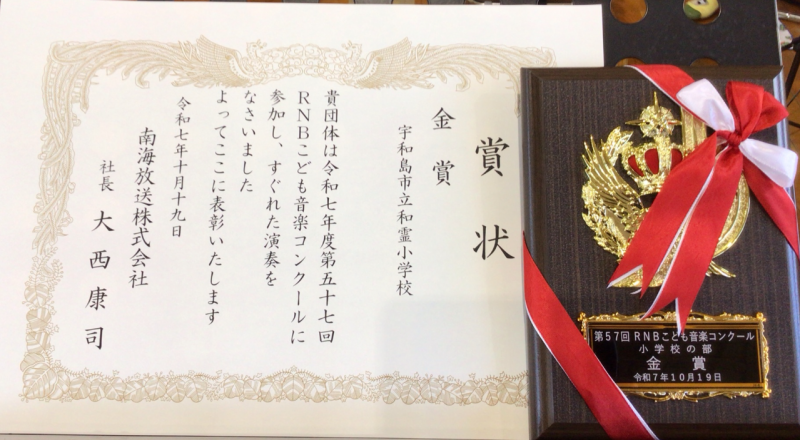 賞状
金賞
宇和島市立和霊小学校
貴団体は令和七年度第五十七回
RNBこども音楽コンクールに
参加し、すぐれた演奏を
なさいました
よってここに表彰いたします
令和七年十月十九日
南海放送株式会社
社長 大西康司
第57回RNBこども音楽コンクール
小学校の部
金賞
令和7年10月19日